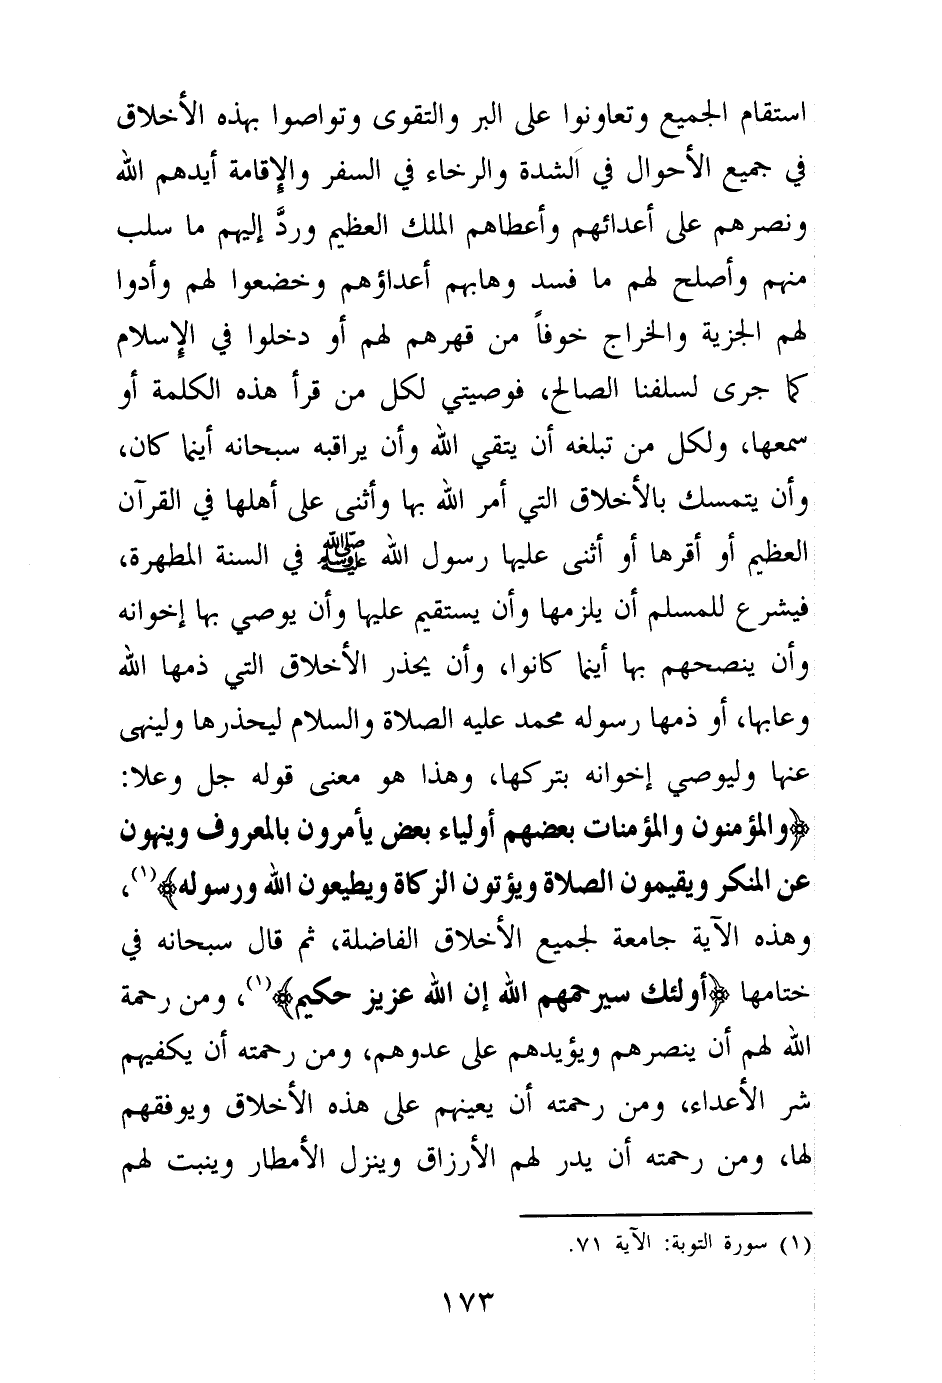 استقام الجميع وتعاونوا على البر والتقوى وتواصوا بهذه الأخلاق
في جميع الأحوال في الشدة والرخاء في السفر والإقامة أيدهم الله
ونصرهم على أعدائهم وأعطاهم الملك العظيم وردَّ إليهم ما سلب
منهم وأصلح لهم ما فسد وهابهم أعداؤهم وخضعوا لهم وأدوا
لهم الجزية والخراج خوفاً من قهرهم لهم أو دخلوا في الإسلام
كما جرى لسلفنا الصالح، فوصيتي لكل من قرأ هذه الكلمة أو
سمعها، ولكل من تبلغه أن يتقي الله وأن يراقبه سبحانه أينما كان،
وأن يتمسك بالأخلاق التي أمر الله بها وأثنى على أهلها في القرآن
العظيم أو أقرها أو أثنى عليها رسول الله ﷺ في السنة المطهرة،
فيشرع للمسلم أن يلزمها وأن يستقيم عليها وأن يوصي بها إخوانه
وأن ينصحهم بها أينما كانوا، وأن يحذر الأخلاق التي ذمها الله
وعابها، أو ذمها رسوله محمد عليه الصلاة والسلام ليحذرها ولينهى
عنها وليوصي إخوانه بتركها، وهذا هو معنى قوله جل وعلا:
﴿والمؤمنون والمؤمنات بعضهم أولياء بعض يأمرون بالمعروف وينهون
عن المنكر ويقيمون الصلاة ويؤتون الزكاة ويطيعون الله ورسوله﴾(١)،
وهذه الآية جامعة لجميع الأخلاق الفاضلة، ثم قال سبحانه في
ختامها ﴿أولئك سيرحمهم الله إن الله عزيز حكيم﴾(١)، ومن رحمة
الله لهم أن ينصرهم ويؤيدهم على عدوهم، ومن رحمته أن يكفيهم
شر الأعداء، ومن رحمته أن يعينهم على هذه الأخلاق ويوفقهم
لها، ومن رحمته أن يدر لهم الأرزاق وينزل الأمطار وينبت لهم
(١) سورة التوبة: الآية ٧١.
١٧٣